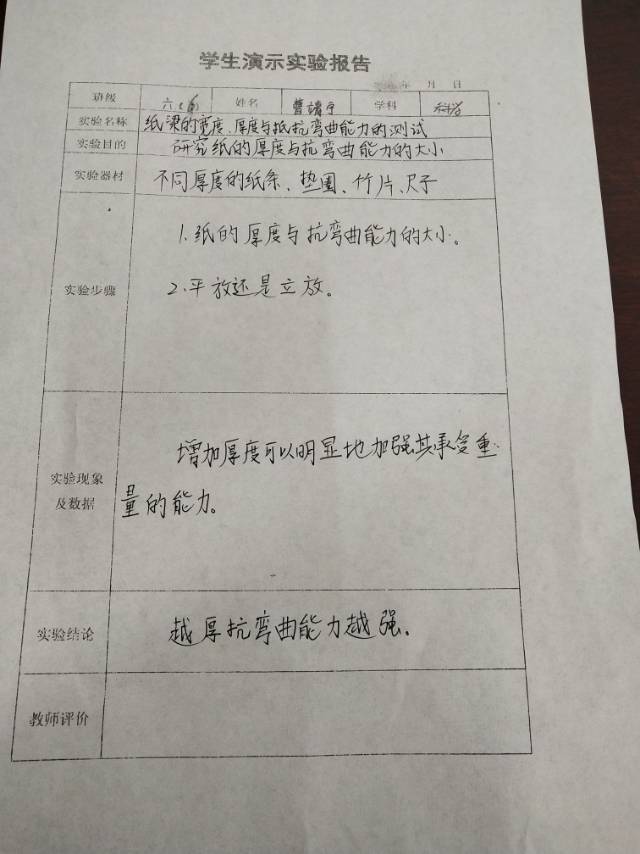 学生演示实验报告
年 月 日
班级 六 姓名 曹靖宁 学科 科学
实验名称 纸梁的宽度、厚度与抵抗弯曲能力的测试
实验目的 研究纸的厚度与抗弯曲能力的大小
实验器材 不同厚度的纸条、垫圈、竹片、尺子
实验步骤
1.纸的厚度与抗弯曲能力的大小。
2.平放还是立放。
实验现象
及数据
增加厚度可以明显地加强其承受重
量的能力。
实验结论 越厚抗弯曲能力越强.
教师评价